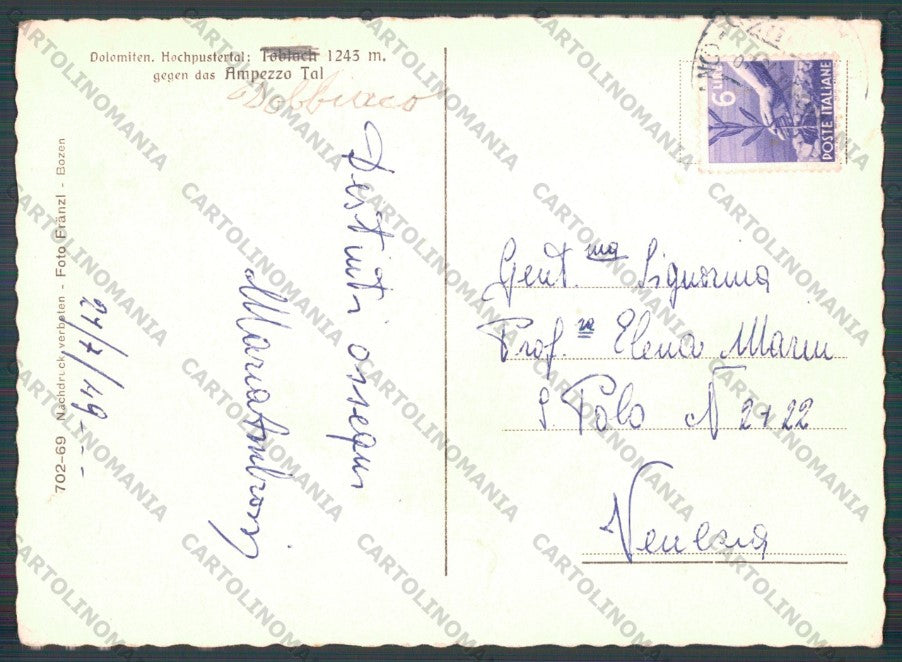 Dolomiten. Hochpustertal: Toblach 1243 m.
gegen das Ampezzo Tal
Dobbiaco
702-69 Nachdruck verboten - Foto Fränzl - Bozen
27/7/49
Distinti ossequi
Maria Ambrosi
6 LIRE
POSTE ITALIANE
Gent.ma Signorina
Prof.ra Elena Marin
S. Polo N 2122
Venezia
CARTOLINOMANIA